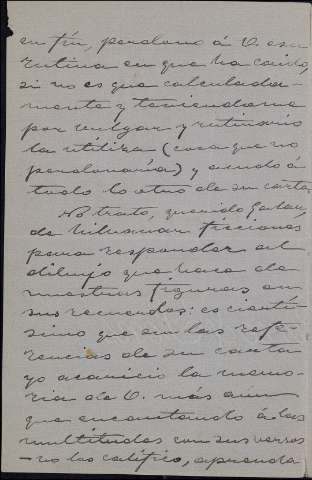 en fín, perdono á V. esa
rutina en que ha caido,
si no es que calculada-
mente y teniendome
por vulgar y rutinario
la utiliza (cosa que no
perdonaría) y acudo á
todo lo otro de su carta.
No trato, querido
de hilvanar ficciones
para responder al
dibujo que hace de
nuestras figuras en
sus recuerdos: es ciertí-
simo que sin las refe-
rencias de su carta
yo acaricio la memo-
ria de V. más aun
que encantando á las
multitudes con sus versos
- no los califico, aprenda